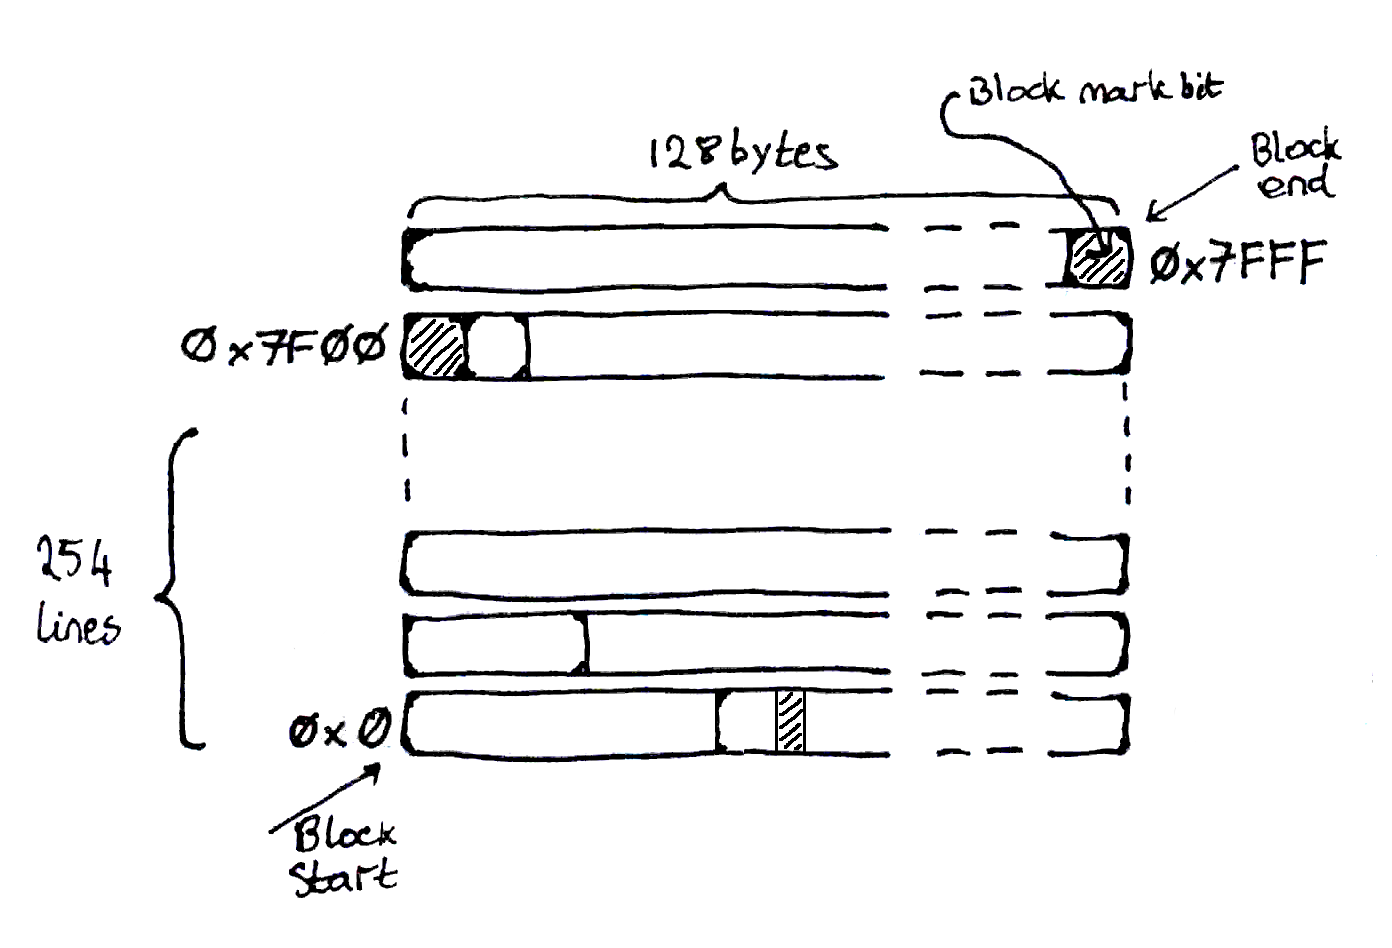 Block mark bit
128 bytes
Block
end
0x7FFF
0x7F00
254
lines
0x0
Block
Start